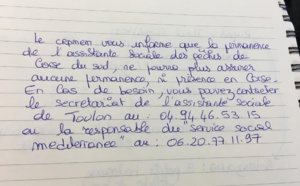 Le crpmem vous informe que la permanence
de l'assistante sociale des pêches de
Corse du sud, ne pourra plus assurer
aucune permanence, à présence en Corse.
En cas de besoin, vous pouvez contacter
le secretariat de l'assistante sociale
de Toulon au : 04.94.46.53.15
ou la responsable du "service social
mediterranée" au : 06.20.77.11.97